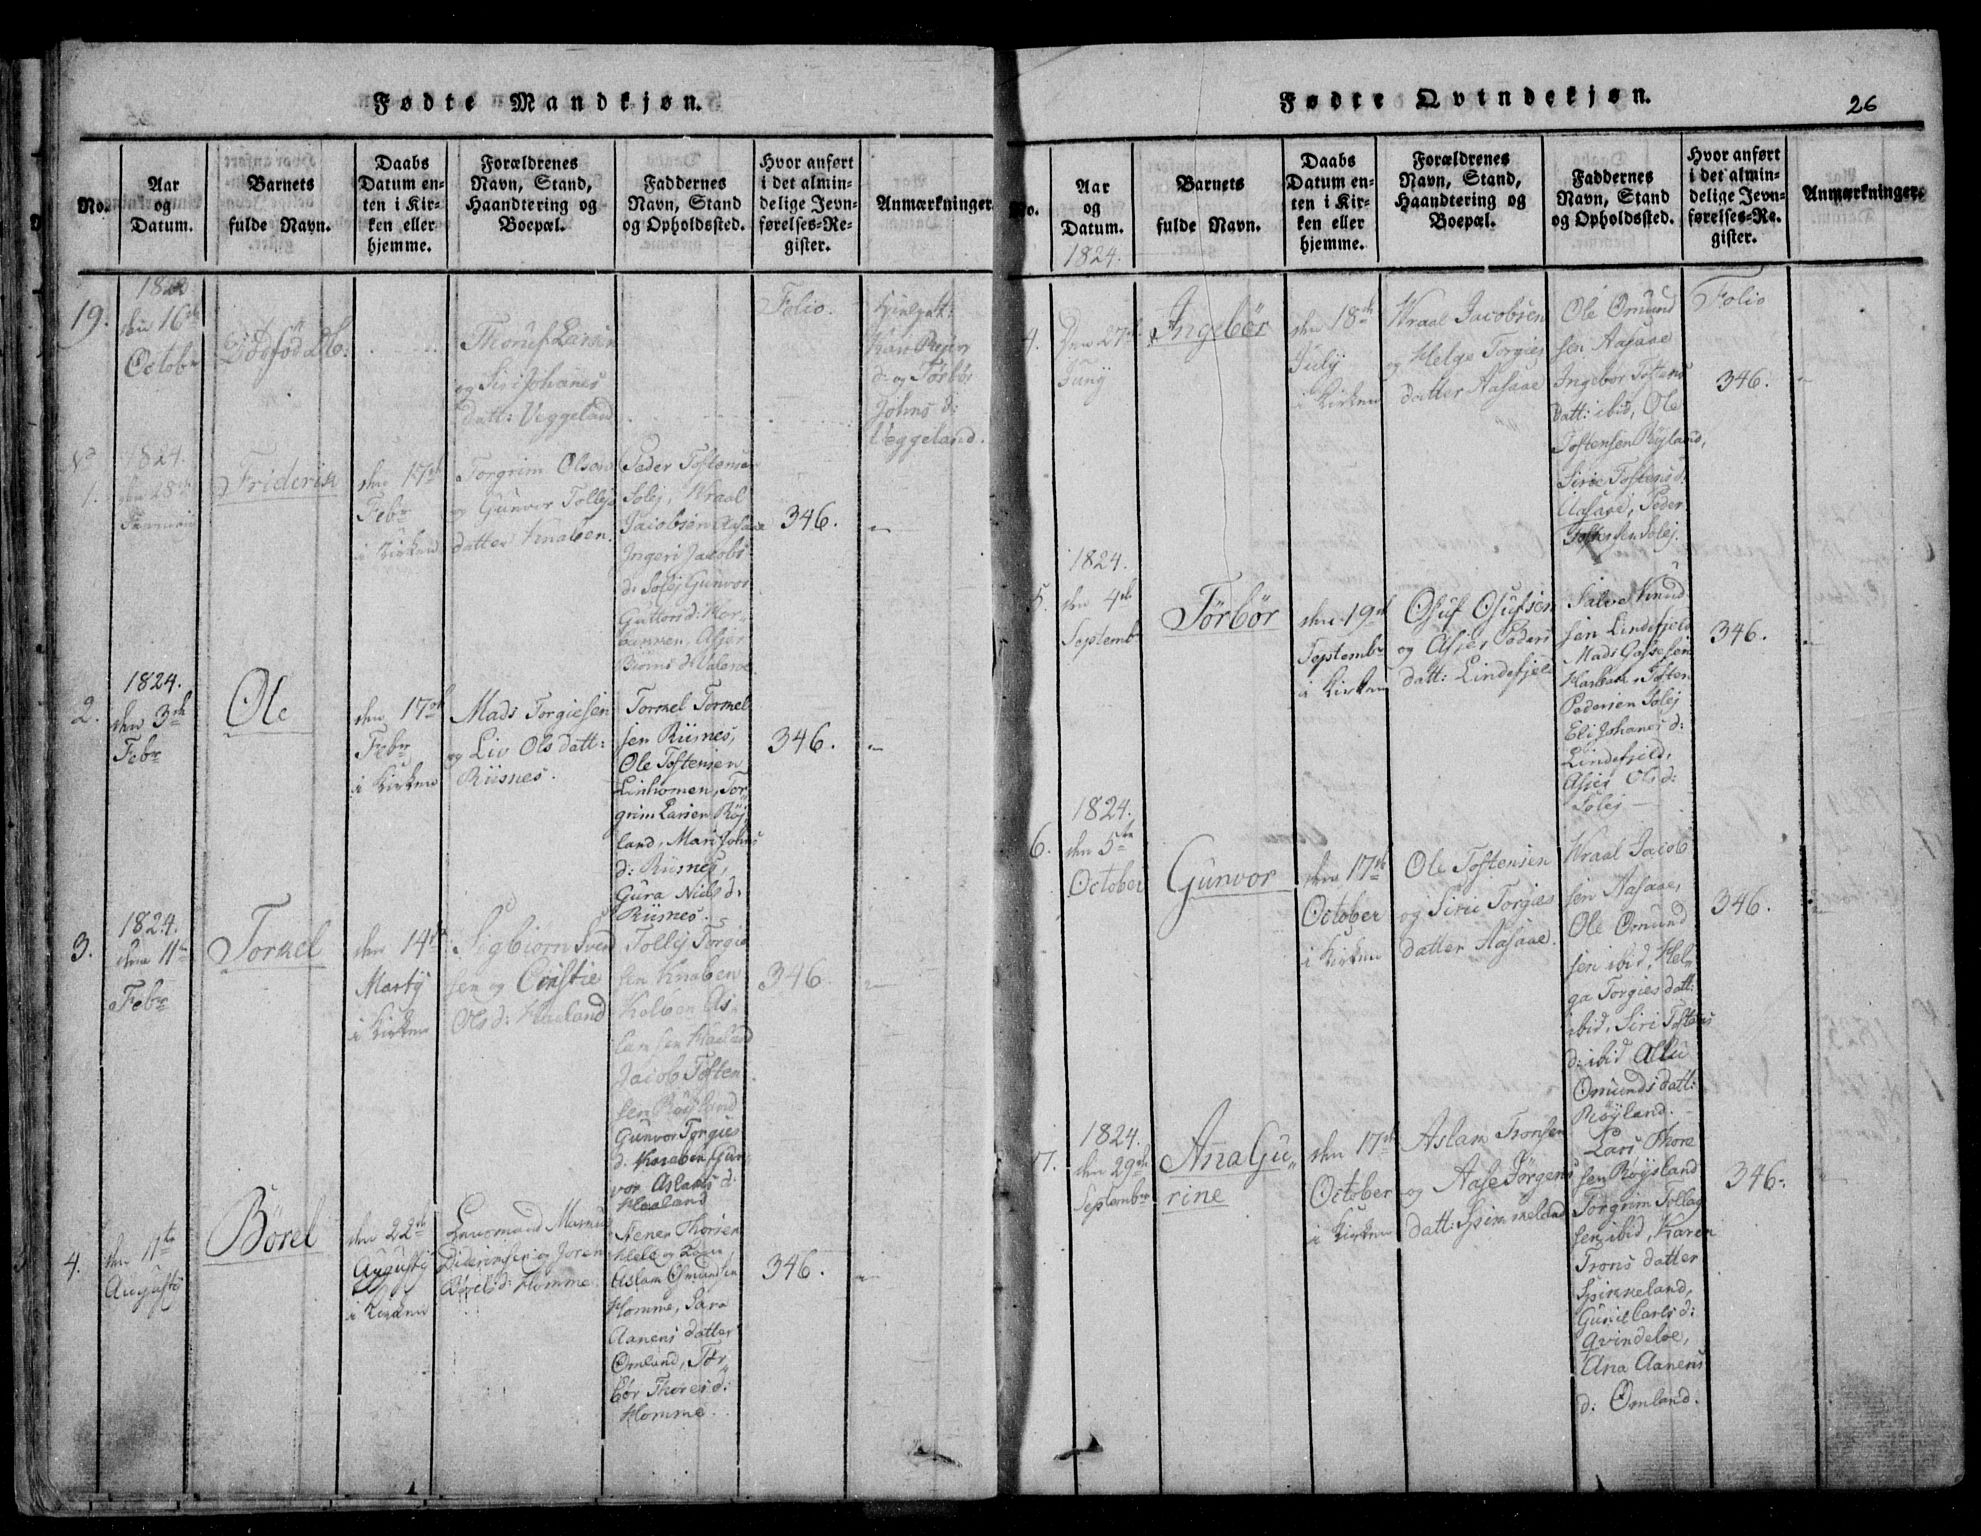 Fødte Mandkjøn.
No.
Aar
og
Datum.
Barnets
fulde Navn.
Daabs
Datum en-
ten i Kir-
ken eller
hjemme.
Forældrenes
Navn, Stand,
Haandtering og
Boepæl.
Faddernes
Navn, Stand
og Opholdssted.
Hvor anført
i det almin-
delige Jevn-
førelses-Re-
gister.
Anmærkninger.
19.
den 16de
Octobr
Dødfød
Larsen
og Siri Johanes
datt: Veggeland
Folio.
d: og Tørbør
Johns d:
Veggeland.
No
1.
1824.
den 28de
Friderik
den 17de
Febr
i Kirken
Torgrim Olsen
og Gunvor Tollejs
datter Knaben.
Peder Toftensen
Solej, Wraal
Jacobsen Aasaae
Ingeri Jacobs
d: Solej Gunvor
346.
2.
1824.
den 3de
Febr
Ole
den 17de
Febr
i Kirken
Mads Torgiesen
og Liv Ols datt:
Riisnes.
Tormel Tormel
sen Riisnes,
Ole Toftensen
Linhomen, Tor
grim Larsen Røj
land, Mari Johns
d: Riisnes,
Gura Niels d:
Riisnes.
346.
3.
1824.
den 11te
Febr
Tormel
den 14de
Martÿ
i Kirken
Sigbiørn Svend
sen og Cristie
Ols d: Haaland
Tollej Torgie
sen Knaben
As
lamsen Haaland
Jacob Toften
sen Røjland
Gunvor Torgies
d: Knaben, Gun
vor Aslaks d:
Haaland
346
4.
den 11te
Augusti
Børel
den 22de
Augusti
i Kirken
Joren
Børels d: Homme.
Thorsen
Aslam Omundsen
Homme, Sara
Aanens datter
Omland, Tør
bør Thores d:
Homme.
346.
Fødte Qvindekjøn.
26
No.
Aar
og
Datum.
1824.
Barnets
fulde Navn.
Daabs
Datum en-
ten i Kir-
ken eller
hjemme.
Forældrenes
Navn, Stand,
Haandtering og
Boepæl.
Faddernes
Navn, Stand
og Opholdssted.
Hvor anført
i det almin-
delige Jevn-
førelses-Re-
gister.
Anmærkninger.
4.
Den 27de
Junÿ
Ingebør
den 18de
July
i Kirken
Wraal Jacobsen
og Helge Torgies
datter Aasaae
Ole Omund
sen Aasaae
Ingebør Toftens
datt: ibid, Ole
Toftensen Røjland,
Sirie Toftens d:
Aasaae, Peder
Toftensen Solej.
Folio
346.
5.
1824.
den 4de
Septembr
Tørbør
den 19de
Septembr
i Kirken
Osuf Osufsen
og Asjer Peders
datt: Lindefjeld
Salve Knud
sen Lindefjeld
Mads
Toften
Pedersen Solej
Eli Johanes d:
Lindefjeld,
Asjer Ols d:
Solej
346.
6.
1824.
den 5te
October
Gunvor
den 17de
October
i Kirken
Ole Toftensen
og Sirie Torgies
datter Aasaae.
Wraal Jacob
sen Aasaae,
Ole Omund
sen ibid, Hel
ga Torgies datt:
ibid, Siri Toftens
d: ibid
Omunds datt:
Røyland.
346.
7.
1824.
den 29de
Septembr
Ana Gu
rine
den 17de
October
i Kirken
Aslam Tronsen
og Aase Jørgens
datt:
Lars Thore
sen Røysland
Torgrim Tollag
sen ibid, Karen
Trons datter
Gunil Carls d:
Qvindeloe,
Ana Aanens
d: Omland.
346.